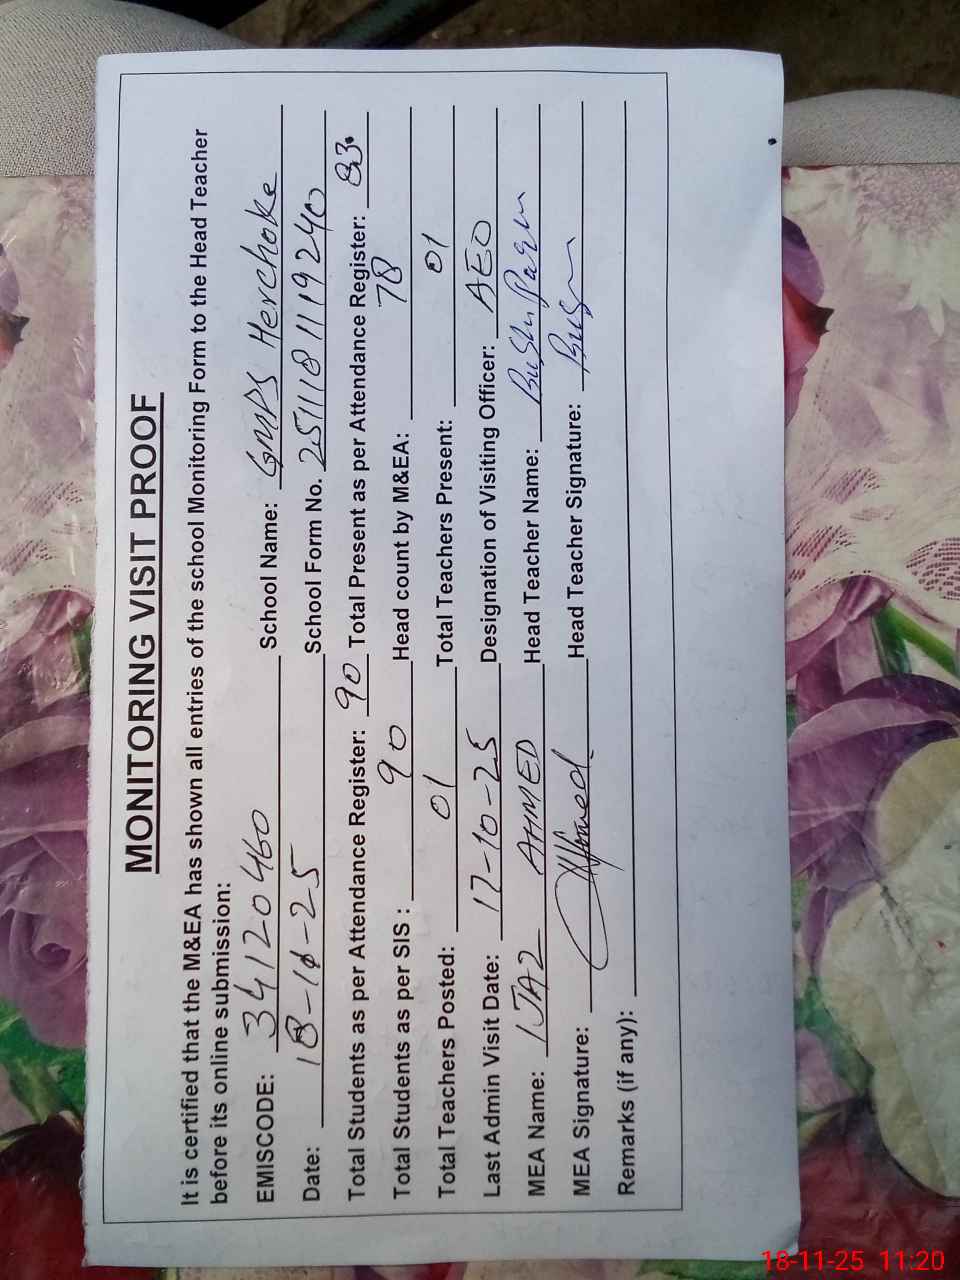 MONITORING VISIT PROOF
It is certified that the M&EA has shown all entries of the school Monitoring Form to the Head Teacher
before its online submission:
EMISCODE: 34120460 School Name: GMPS Herchoke
Date: 18-11-25 School Form No. 2511181119240
Total Students as per Attendance Register: 90 Total Present as per Attendance Register: 83
Total Students as per SIS : 90 Head count by M&EA: 78
Total Teachers Posted: 01 Total Teachers Present: 01
Last Admin Visit Date: 17-10-25 Designation of Visiting Officer: AEO
MEA Name: IJAZ AHMED Head Teacher Name:
MEA Signature: Head Teacher Signature:
Remarks (if any):
18-11-25 11:20